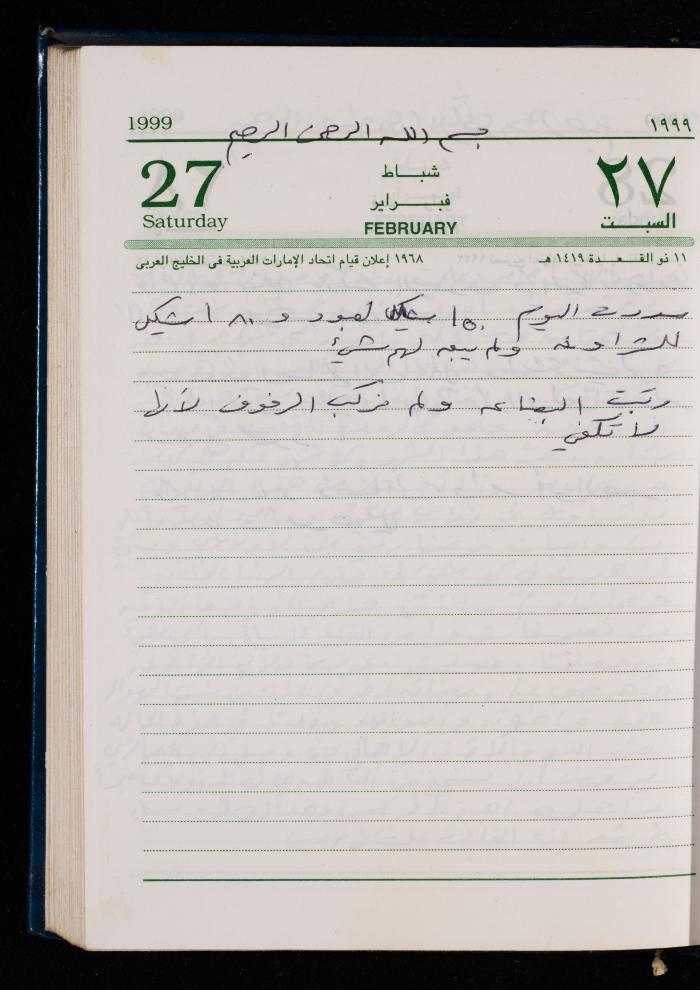 1999
بسم الله الرحمن الرحيم
١٩٩٩
27
Saturday
شبــاط
فبــراير
FEBRUARY
٢٧
السبت
١١ ذو القعــدة ١٤١٩ هـ
١٩٦٨ إعلان قيام اتحاد الإمارات العربية فى الخليج العربى
سددت اليوم ١٥٠ شيكل لعبود و ١٨٠ شيكل
ولم يبق لهم شيئ
رتبت البضاعه ولم نركب الرفوف لأنها
لا تكفي